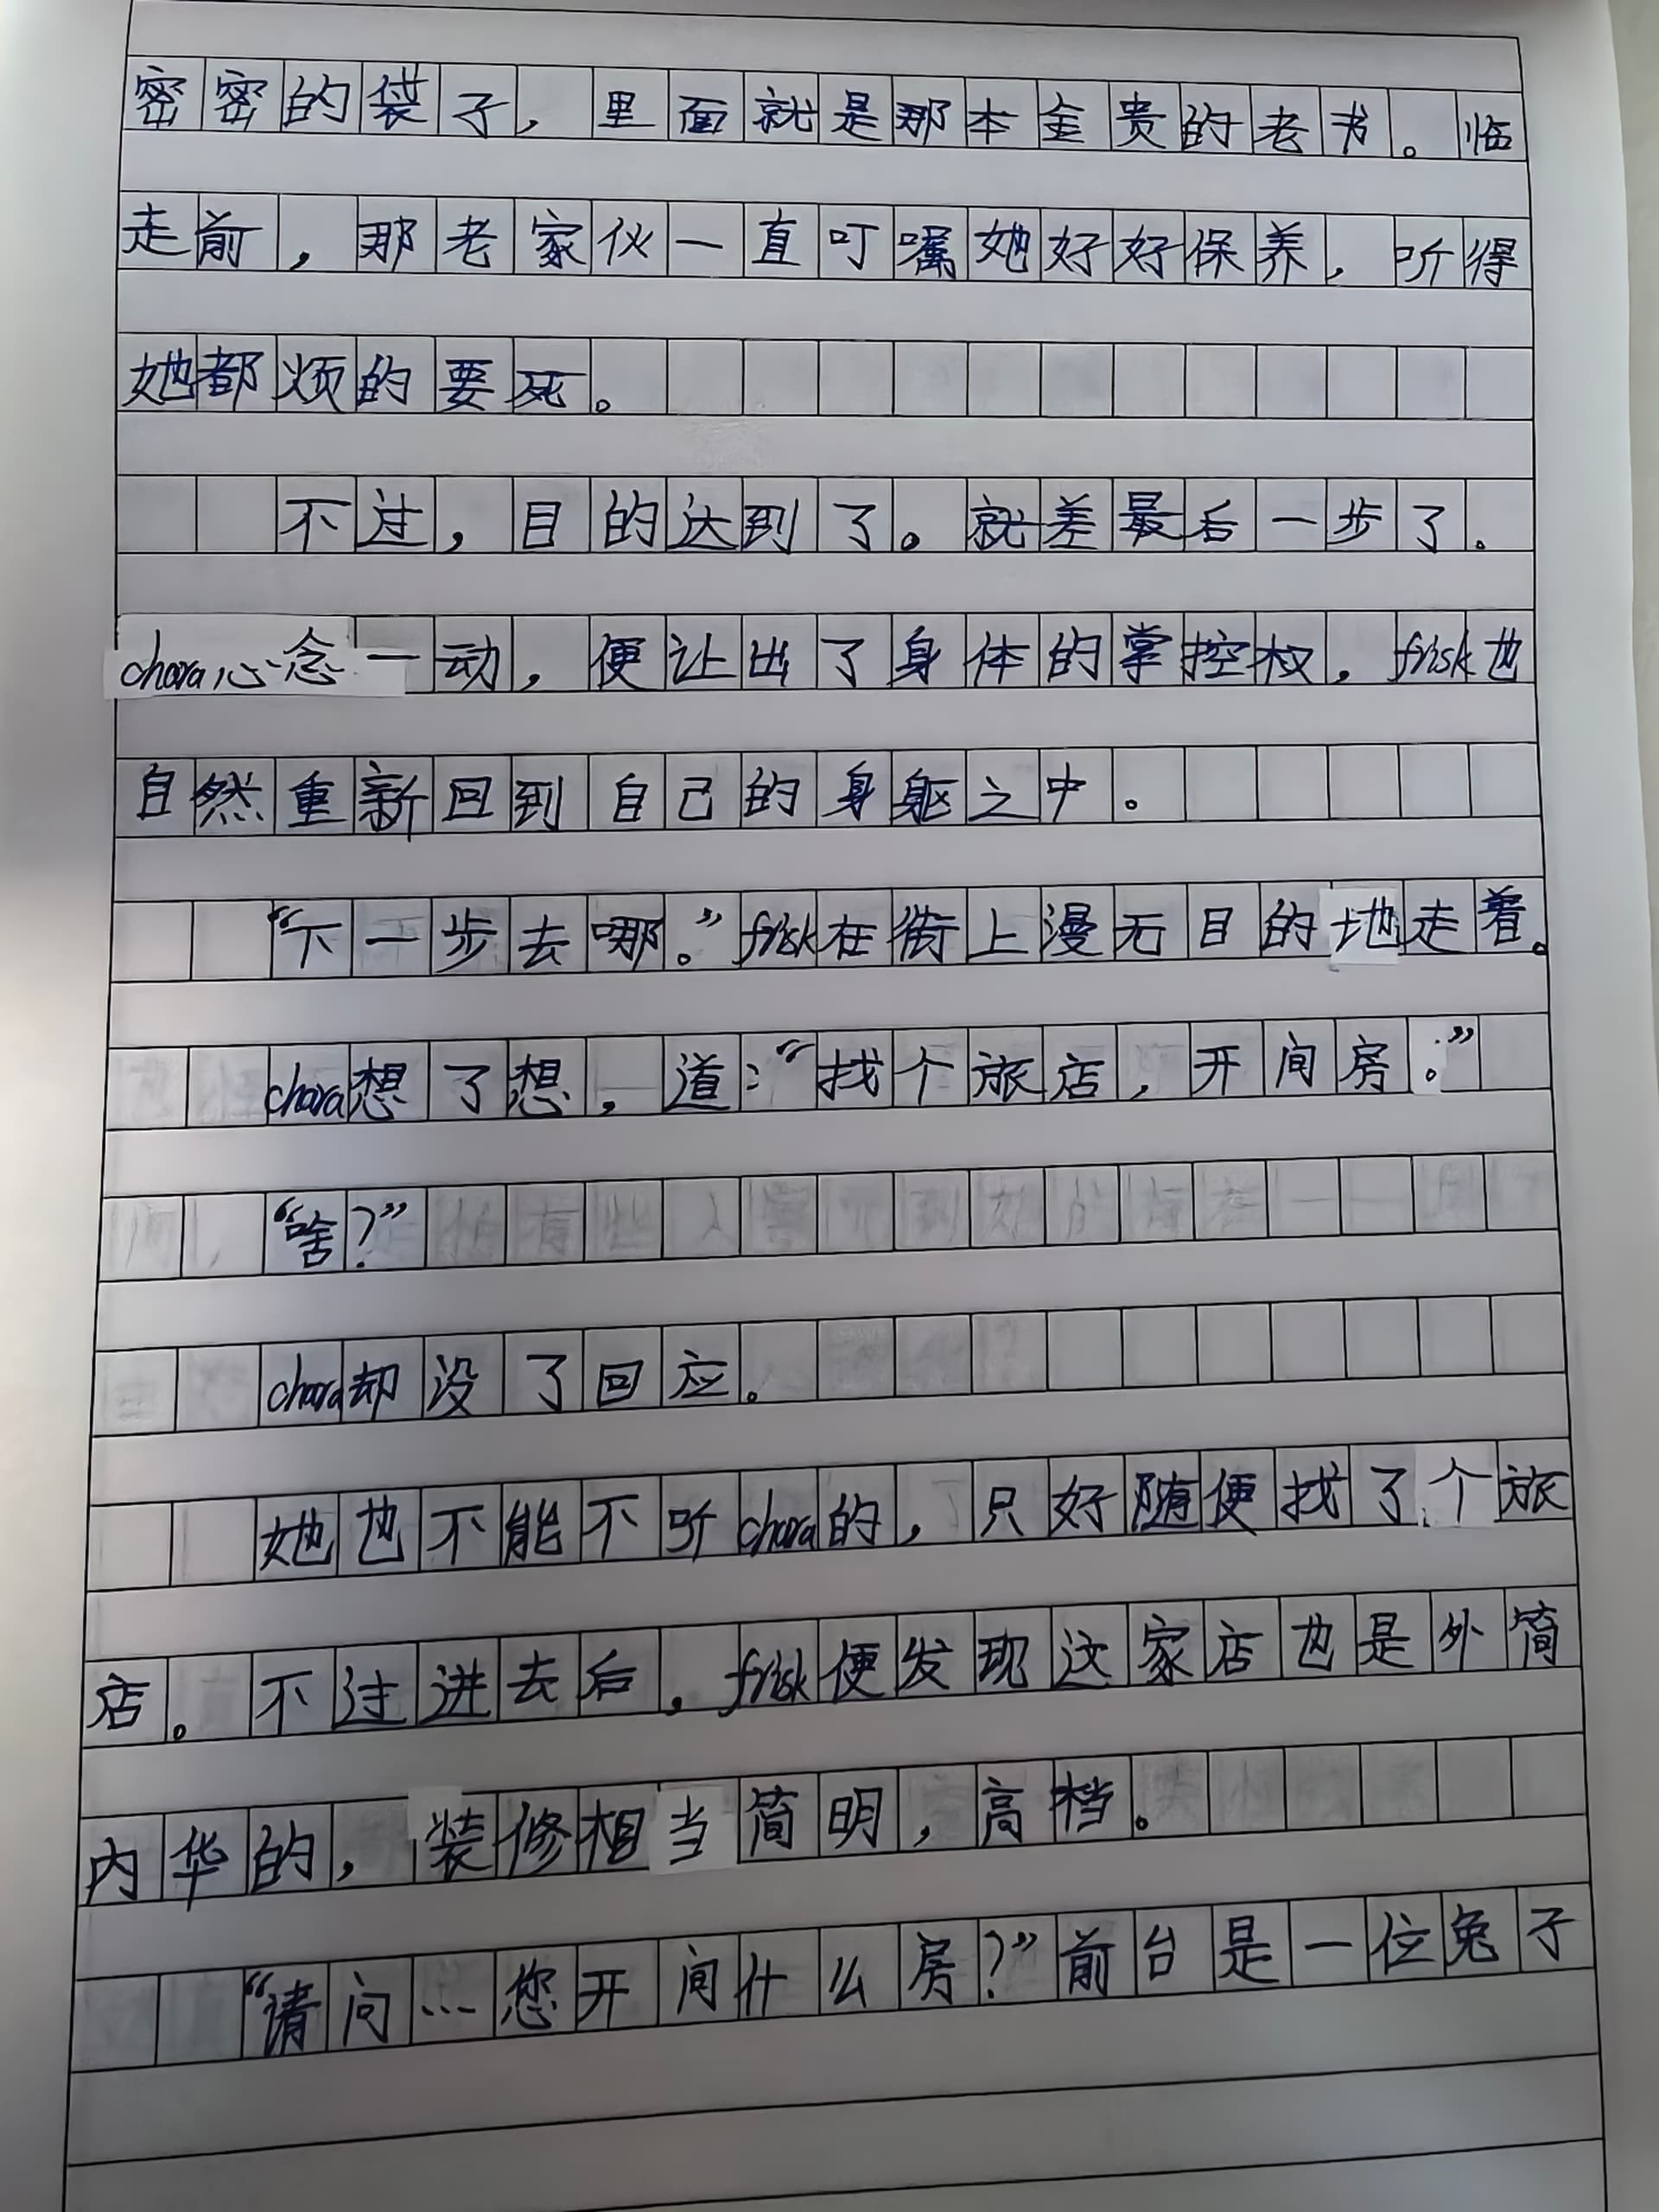 密密的袋子，里面就是那本金贵的老书。临
走前，那老家伙一直叮嘱她好好保养，听得
她都烦的要死。
不过，目的达到了。就差最后一步了。
chara心念一动，便让出了身体的掌控权，frisk也
自然重新回到自己的身躯之中。
“下一步去哪。”frisk在街上漫无目的地走着。
chara想了想，道：“找个旅店，开间房。”
“啥？”
chara却没了回应。
她也不能不听chara的，只好随便找了个旅
店。不过进去后，frisk便发现这家店也是外简
内华的，装修相当简明，高档。
“请问…您开间什么房？”前台是一位兔子